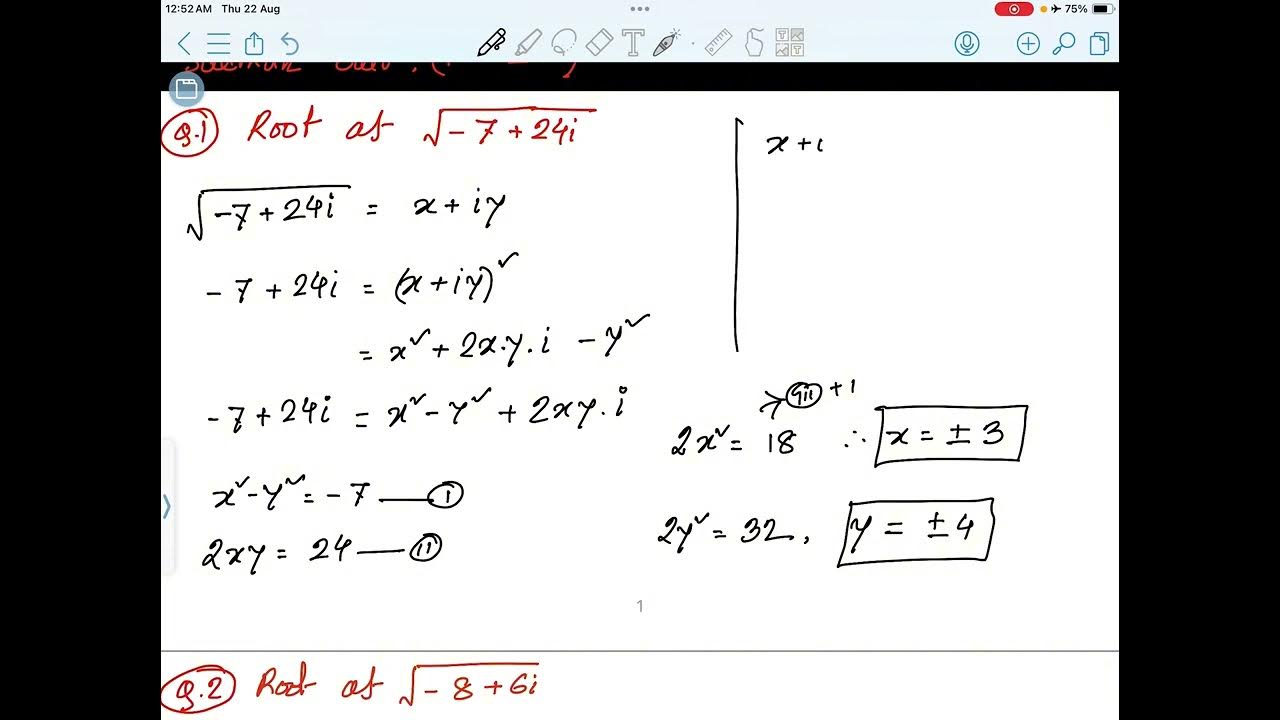 12:52 AM Thu 22 Aug
75%
Q.1 Root at √(-7+24i)
√(-7+24i) = x+iy
-7+24i = (x+iy)²
= x²+2x.y.i -y²
-7+24i = x²-y²+2xy.i
x²-y²=-7 — (i)
2xy = 24 — (ii)
x+i
(iii) +1
2x² = 18 ∴ x = ±3
2y² = 32, y = ±4
1
Q.2 Root at √(-8+6i)